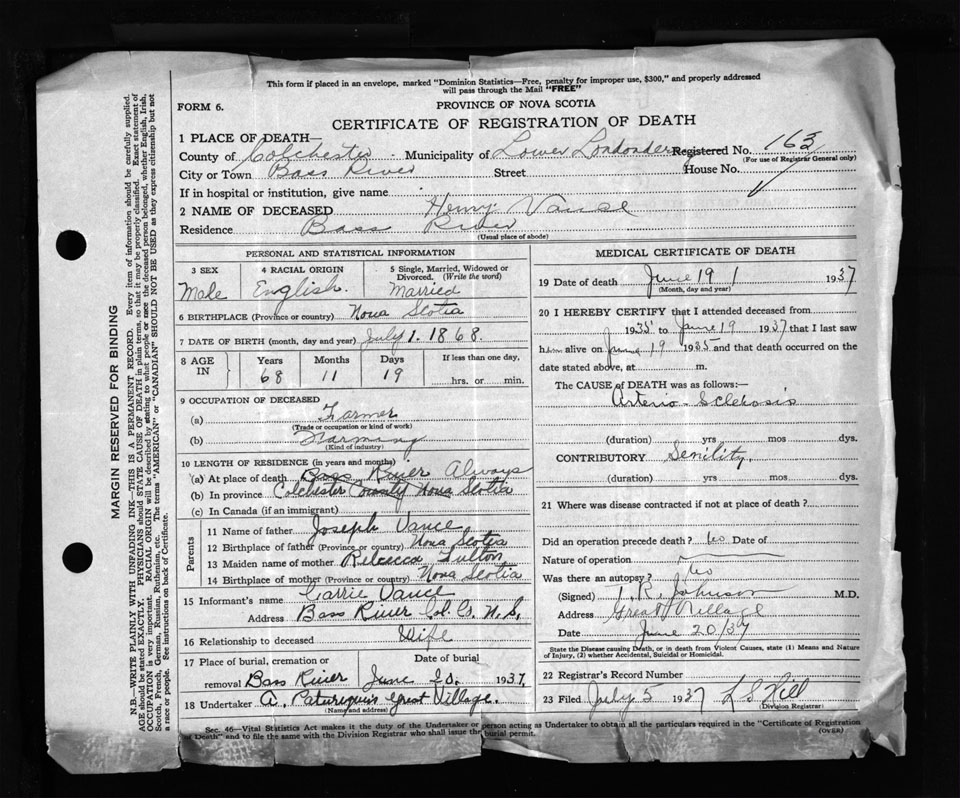 This form if placed in an envelope, marked "Dominion Statistics—Free, penalty for improper use, $300," and properly addressed
will pass through the Mail "FREE"
FORM 6.
PROVINCE OF NOVA SCOTIA
CERTIFICATE OF REGISTRATION OF DEATH
1 PLACE OF DEATH—
County of Colchester Municipality of Lower Londonderry Registered No. 163
(For use of Registrar General only)
City or Town Bass River Street House No.
If in hospital or institution, give name
2 NAME OF DECEASED Henry Vance
Residence Bass River
(Usual place of abode)
PERSONAL AND STATISTICAL INFORMATION
3 SEX 4 RACIAL ORIGIN 5 Single, Married, Widowed or
Divorced. (Write the word)
Male English. Married
6 BIRTHPLACE (Province or country) Nova Scotia
7 DATE OF BIRTH (month, day and year) July 1. 1868.
8 AGE IN Years Months Days If less than one day,
68 11 19 hrs. or min.
9 OCCUPATION OF DECEASED
(a) Farmer
(Trade or occupation or kind of work)
(b) Farming
(Kind of industry)
10 LENGTH OF RESIDENCE (in years and months)
(a) At place of death Bass River Always
(b) In province Colchester County Nova Scotia
(c) In Canada (if an immigrant)
Parents
11 Name of father Joseph Vance
12 Birthplace of father (Province or country) Nova Scotia
13 Maiden name of mother Rebecca Fulton
14 Birthplace of mother (Province or country) Nova Scotia
15 Informant's name Carrie Vance
Address Bass River Col. Co. N.S.
16 Relationship to deceased Wife
17 Place of burial, cremation or Date of burial
removal Bass River June 20. 1937
18 Undertaker A. Great Village.
(Name and address)
MEDICAL CERTIFICATE OF DEATH
19 Date of death June 19 1937
(Month, day and year)
20 I HEREBY CERTIFY that I attended deceased from
1935 to June 19 1937 that I last saw
him alive on June 19 1935 and that death occurred on the
date stated above, at m.
The CAUSE of DEATH was as follows:—
Arterio Sclerosis
(duration) yrs mos dys.
CONTRIBUTORY Senility.
(duration) yrs mos dys.
21 Where was disease contracted if not at place of death?
Did an operation precede death? no Date of
Nature of operation
Was there an autopsy? no
(Signed) T. R. Johnson M.D.
Address Great Village
Date June 20/37
State the Disease causing Death, or in death from Violent Causes, state (1) Means and Nature
of Injury, (2) whether Accidental, Suicidal or Homicidal.
22 Registrar's Record Number
23 Filed July 5 1937 L S Hill
(Division Registrar)
Sec. 46—Vital Statistics Act makes it the duty of the Undertaker or person acting as Undertaker to obtain all the particulars required in the "Certificate of Registration
of Death" and to file the same with the Division Registrar who shall issue the burial permit.
(OVER)
MARGIN RESERVED FOR BINDING
N.B.—WRITE PLAINLY WITH UNFADING INK—THIS IS A PERMANENT RECORD. Every item of information should be carefully supplied.
AGE should be stated EXACTLY. PHYSICIANS should STATE CAUSE OF DEATH in plain terms, so that it may be properly classified. Exact statement of
OCCUPATION is very important. RACIAL ORIGIN will be described by stating to what people or race the deceased person belonged, whether English, Irish,
Scotch, French, German, Russian, Ruthenian, etc. The terms "AMERICAN" or "CANADIAN" SHOULD NOT BE USED as they express citizenship but not
a race or people. See instructions on back of Certificate.